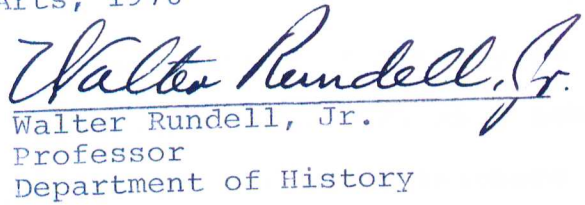 Arts, 1970
Walter Rundell, Jr.
Walter Rundell, Jr.
Professor
Department of History